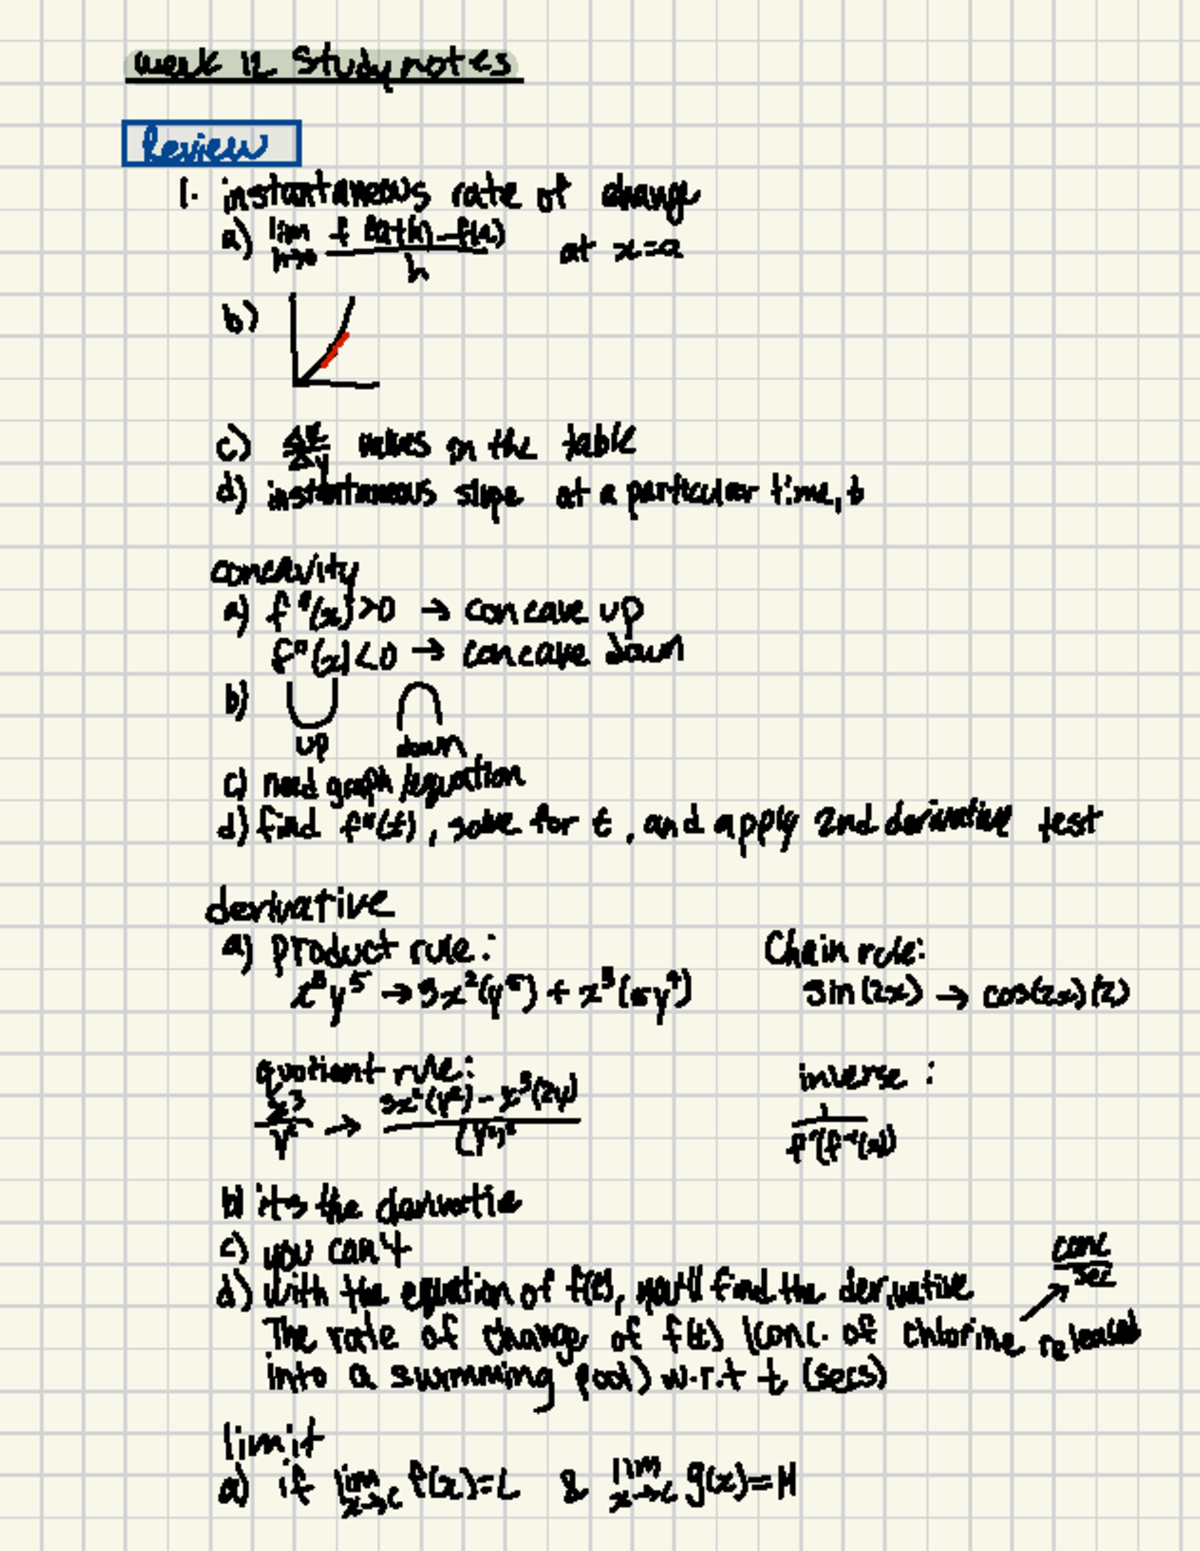 week 12 Study notes
Review
1. instantaneous rate of change
a) lim h→0 f(a+h)-f(a) / h at x=a
b)
c) Δx/Δy values in the table
d) instantaneous slope at a particular time, t
concavity
a) f"(x)>0 → concave up
f"(x)<0 → concave down
b)
up down
c) need graph/equation
d) find f"(t), solve for t, and apply 2nd derivative test
derivative
a) product rule: Chain rule:
x³y⁵ → 3x²(y⁵) + x³(5y⁴) sin(2x) → cos(2x)(2)
quotient rule: inverse:
x³/y² → 3x²(y²) - x³(2y) / (y²)² 1 / f'(f⁻¹(x))
b) its the derivatie
c) you can't
d) with the equation of f(t), you'll find the derivative
conc/sec
The rate of change of f(t) (conc. of chlorine released
into a swimming pool) w.r.t t (secs)
limit
a) if lim x→c f(x)=L & lim x→c g(x)=M